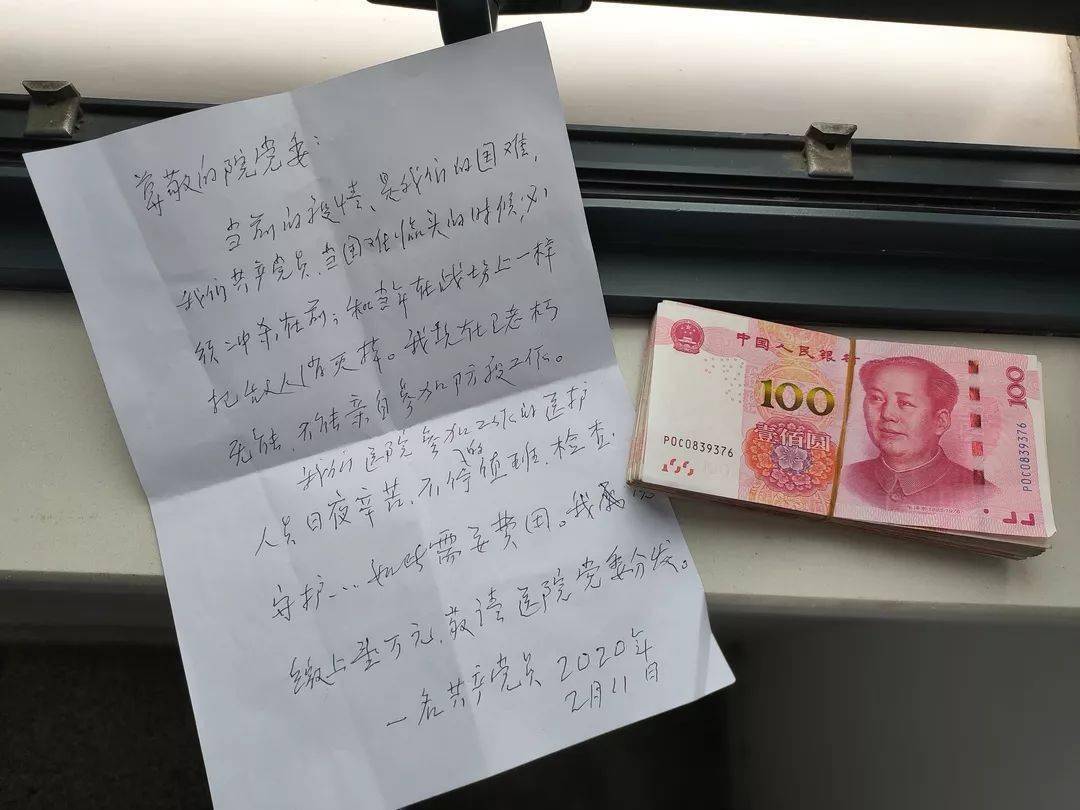 尊敬的院党委：
当前的疫情、是我们的国难，
我们共产党员、当国难临头的时候，必
须冲杀在前；和当年在战场上一样
把敌人消灭掉。我现在已老朽
无能、不能亲自参加防疫工作。
我们医院参加的医护
人员日夜辛苦、不停值班、检查、
守护…如些需要费用。我
缴上壹万元，敬请医院党委分发。
一名共产党员 2020年
2月11日
中国人民银行
100
壹佰圆
POC0839376
100
100
POC0839376